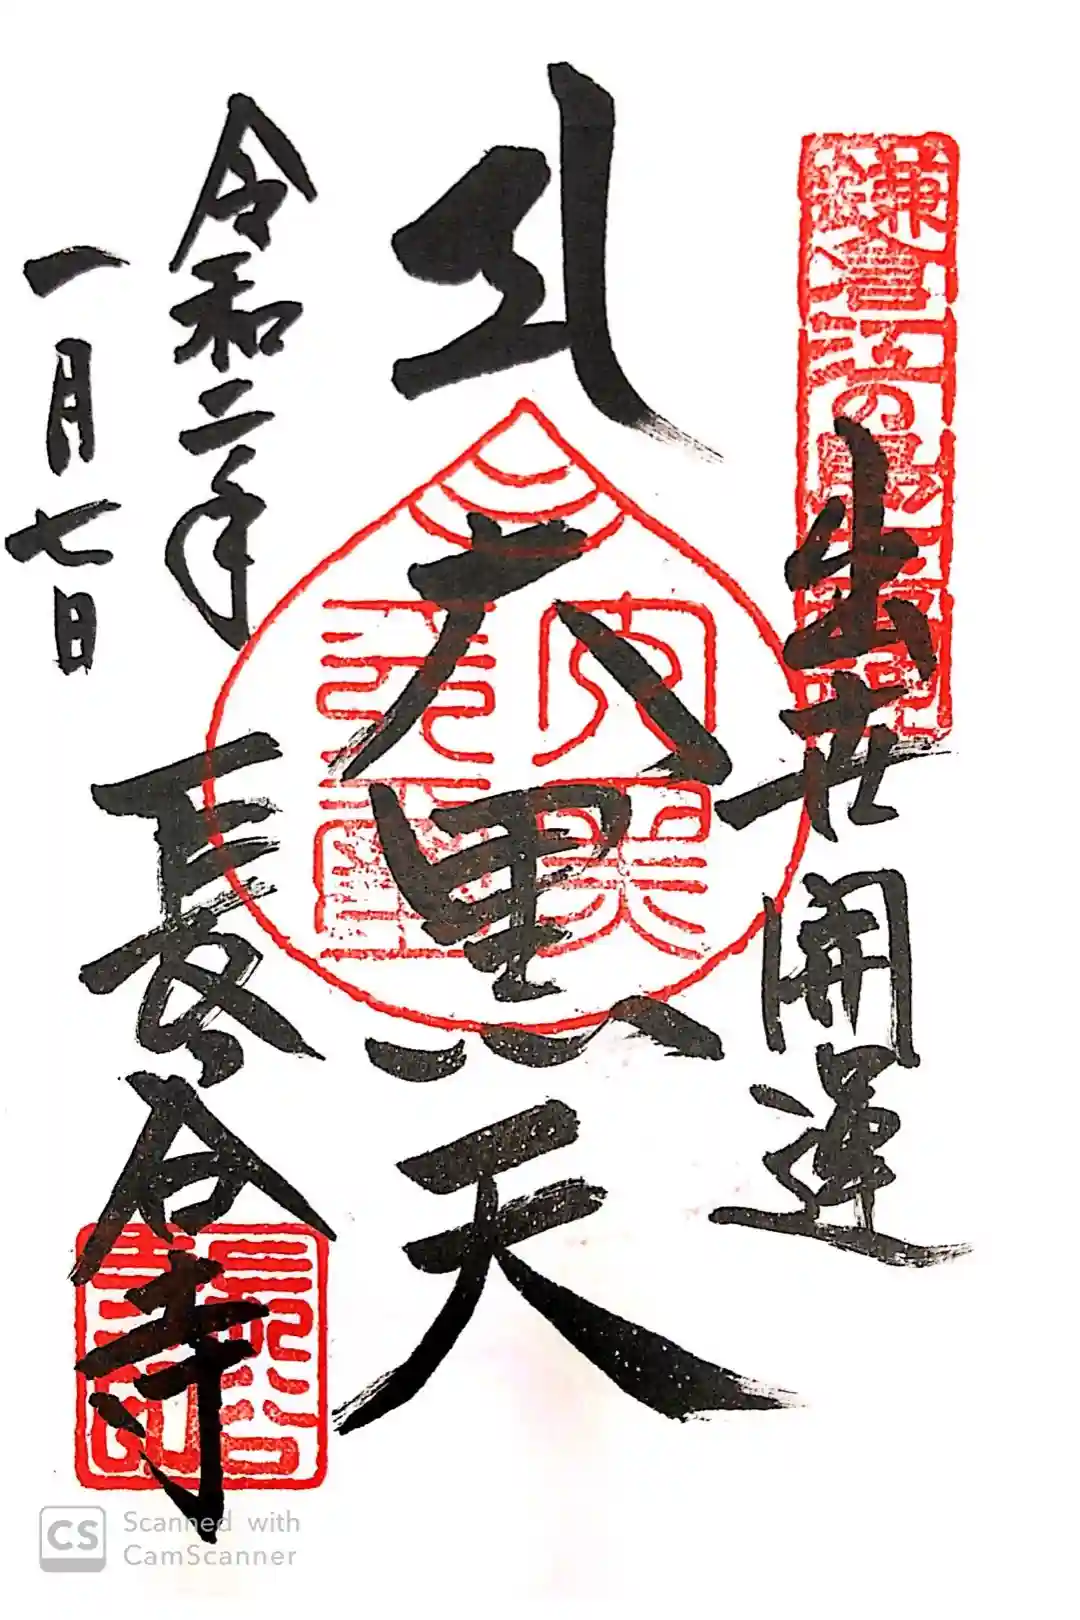 鎌倉江の島七福神
出世開運
大黒天
令和二年
一月七日
長谷寺
長谷寺印
Scanned with
CamScanner
CS